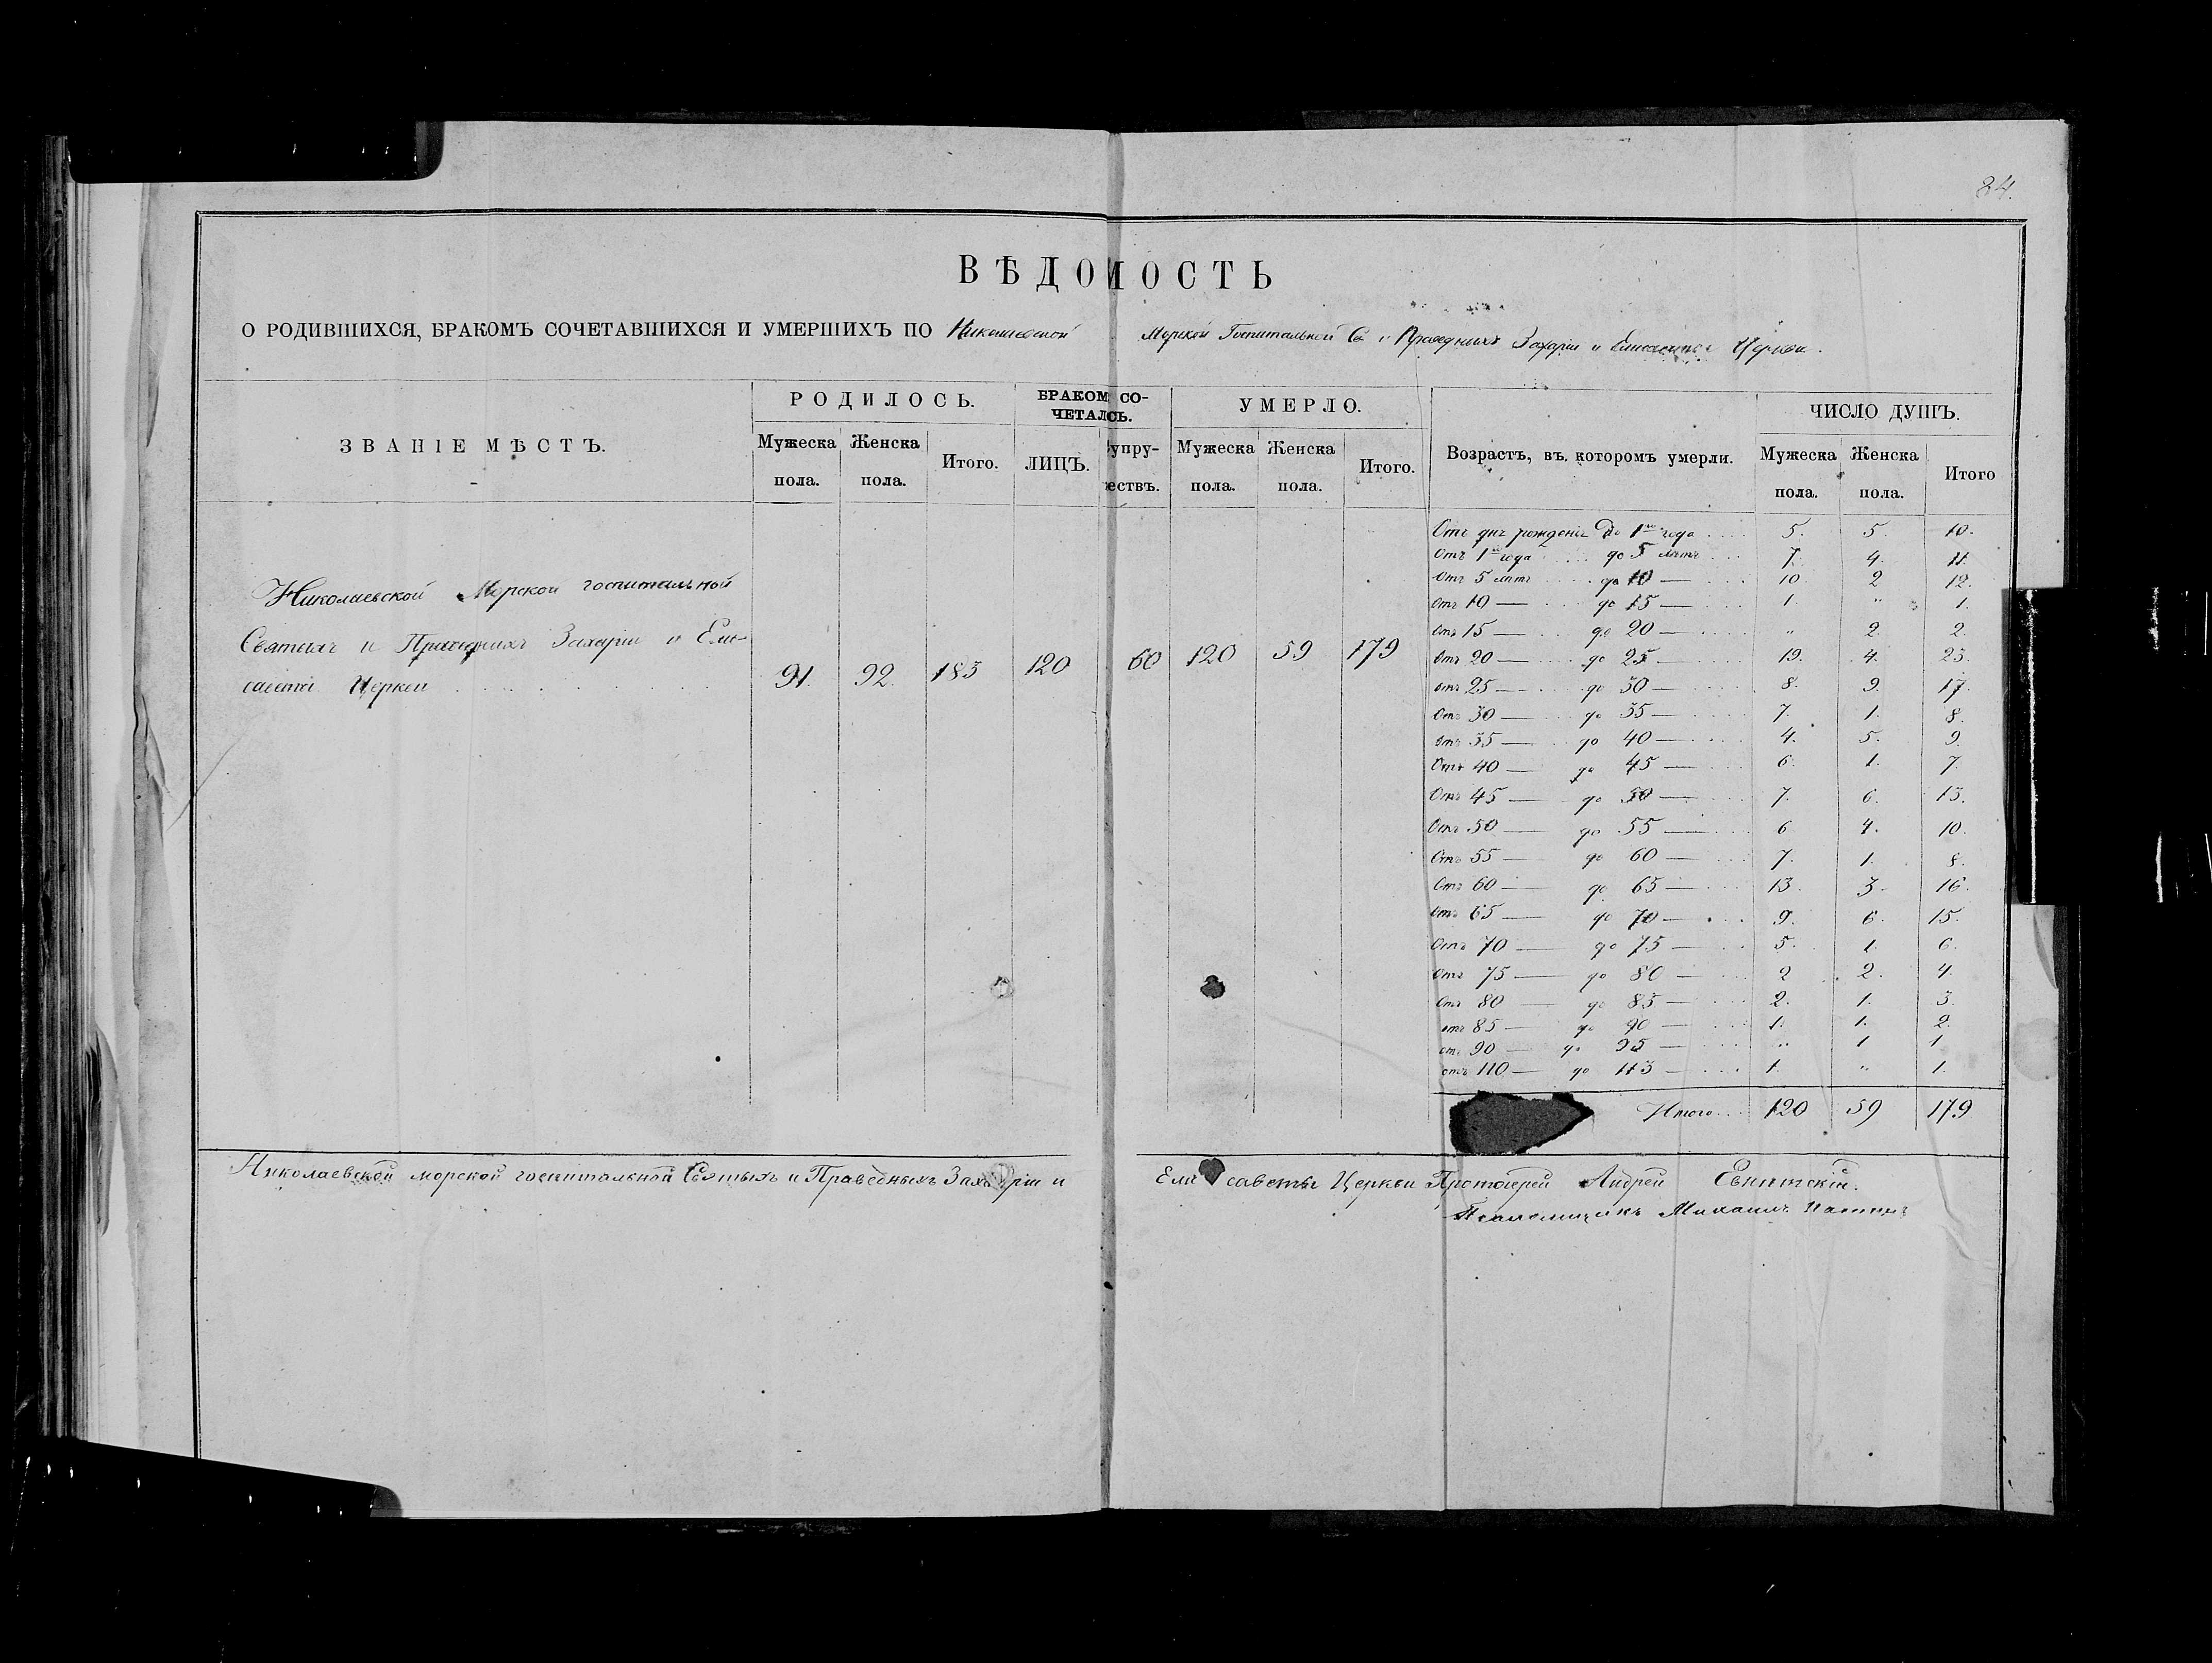 84.
ВѢДОМОСТЬ
О РОДИВШИХСЯ, БРАКОМЪ СОЧЕТАВШИХСЯ И УМЕРШИХЪ ПО Николаевской Морской Госпитальной Св. и Праведныхъ Захаріи и Елисаветы Церкви.
ЗВАНІЕ МѢСТЪ. РОДИЛОСЬ. БРАКОМ СОЧЕТАЛОСЬ. УМЕРЛО. Возрастъ, въ которомъ умерли. ЧИСЛО ДУШЪ.
Мужеска пола. Женска пола. Итого. ЛИЦЪ. упружествъ. Мужеска пола. Женска пола. Итого. Мужеска пола. Женска пола. Итого
Николаевской Морской госпитальной
Святыхъ и Праведныхъ Захаріи и Ели-
саветы Церкви 91. 92. 183 120 60 120 59 179
Отъ дня рожденія до 1го года 5. 5. 10.
Отъ 1го года до 5 лѣтъ 7. 4. 11.
Отъ 5 лѣтъ до 10 — 10. 2 12.
Отъ 10 — до 15 — 1. " 1.
Отъ 15 — до 20 — " 2. 2.
Отъ 20 — до 25 — 19. 4. 23.
Отъ 25 — до 30 — 8. 9. 17.
Отъ 30 — до 35 — 7. 1. 8.
Отъ 35 — до 40 — 4. 5. 9.
Отъ 40 — до 45 — 6. 1. 7.
Отъ 45 — до 50 — 7. 6. 13.
Отъ 50 — до 55 — 6 4. 10.
Отъ 55 — до 60 — 7. 1. 8.
Отъ 60 — до 65 — 13. 3. 16.
Отъ 65 — до 70 — 9. 6. 15.
Отъ 70 — до 75 — 5. 1. 6.
Отъ 75 — до 80 — 2 2. 4.
Отъ 80 — до 85 — 2. 1. 3.
отъ 85 — до 90 — 1. 1. 2.
отъ 90 — до 95 — " 1 1
отъ 110 — до 115 — 1. " 1.
Итого 120 59 179
Николаевской морской госпитальной Святыхъ и Праведныхъ Захаріи и Елисаветы Церкви Протоіерей Андрей
Псаломщикъ Михаилъ